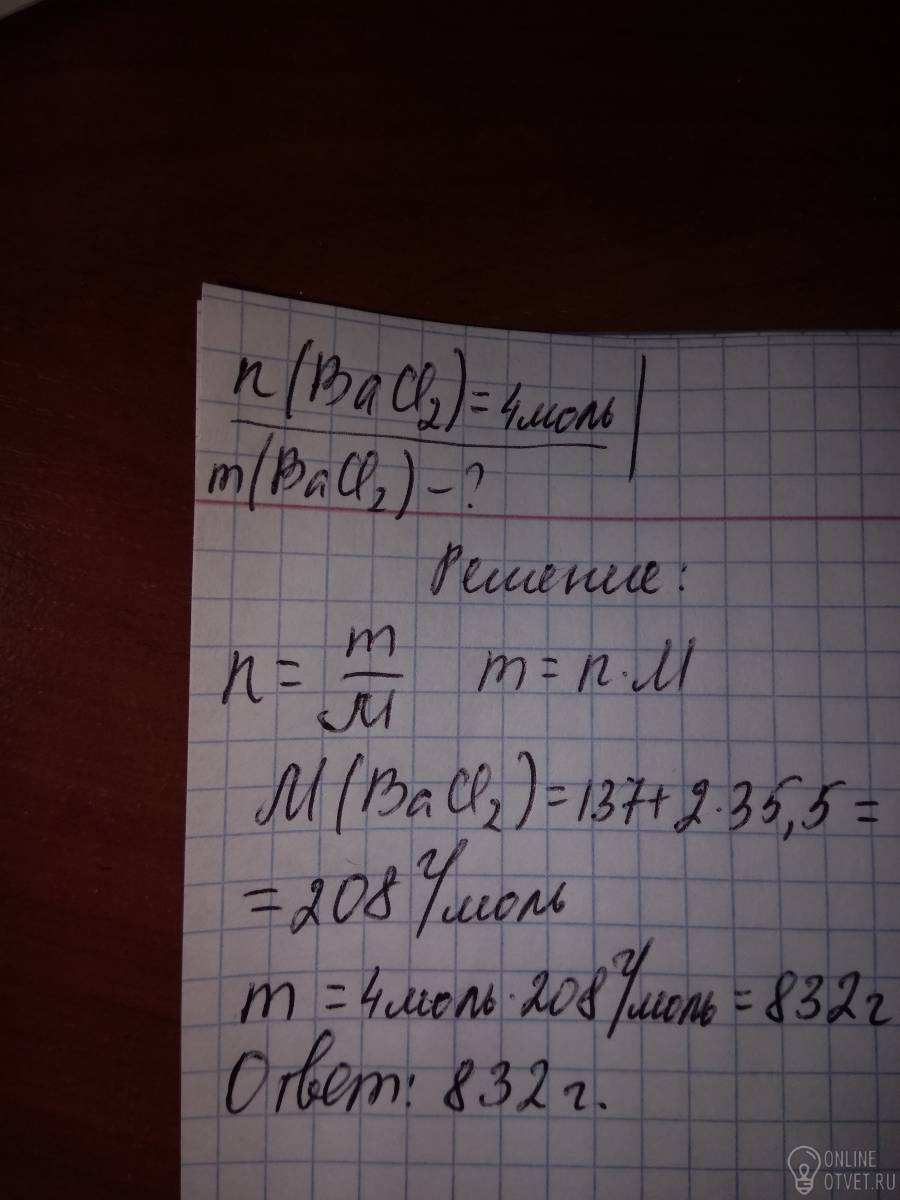 n(BaCl₂)=4моль
m(BaCl₂)-?
Решение:
n = m/M m = n·M
M(BaCl₂)=137+2·35,5=
=208 г/моль
m = 4моль·208 г/моль = 832г
Ответ: 832г.
ONLINE
OTVET.RU